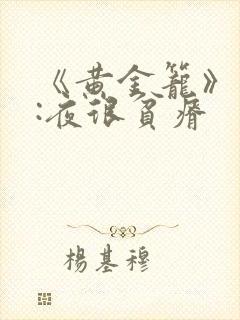 《黄金籠》
:夜很貧瘠
楊基穆